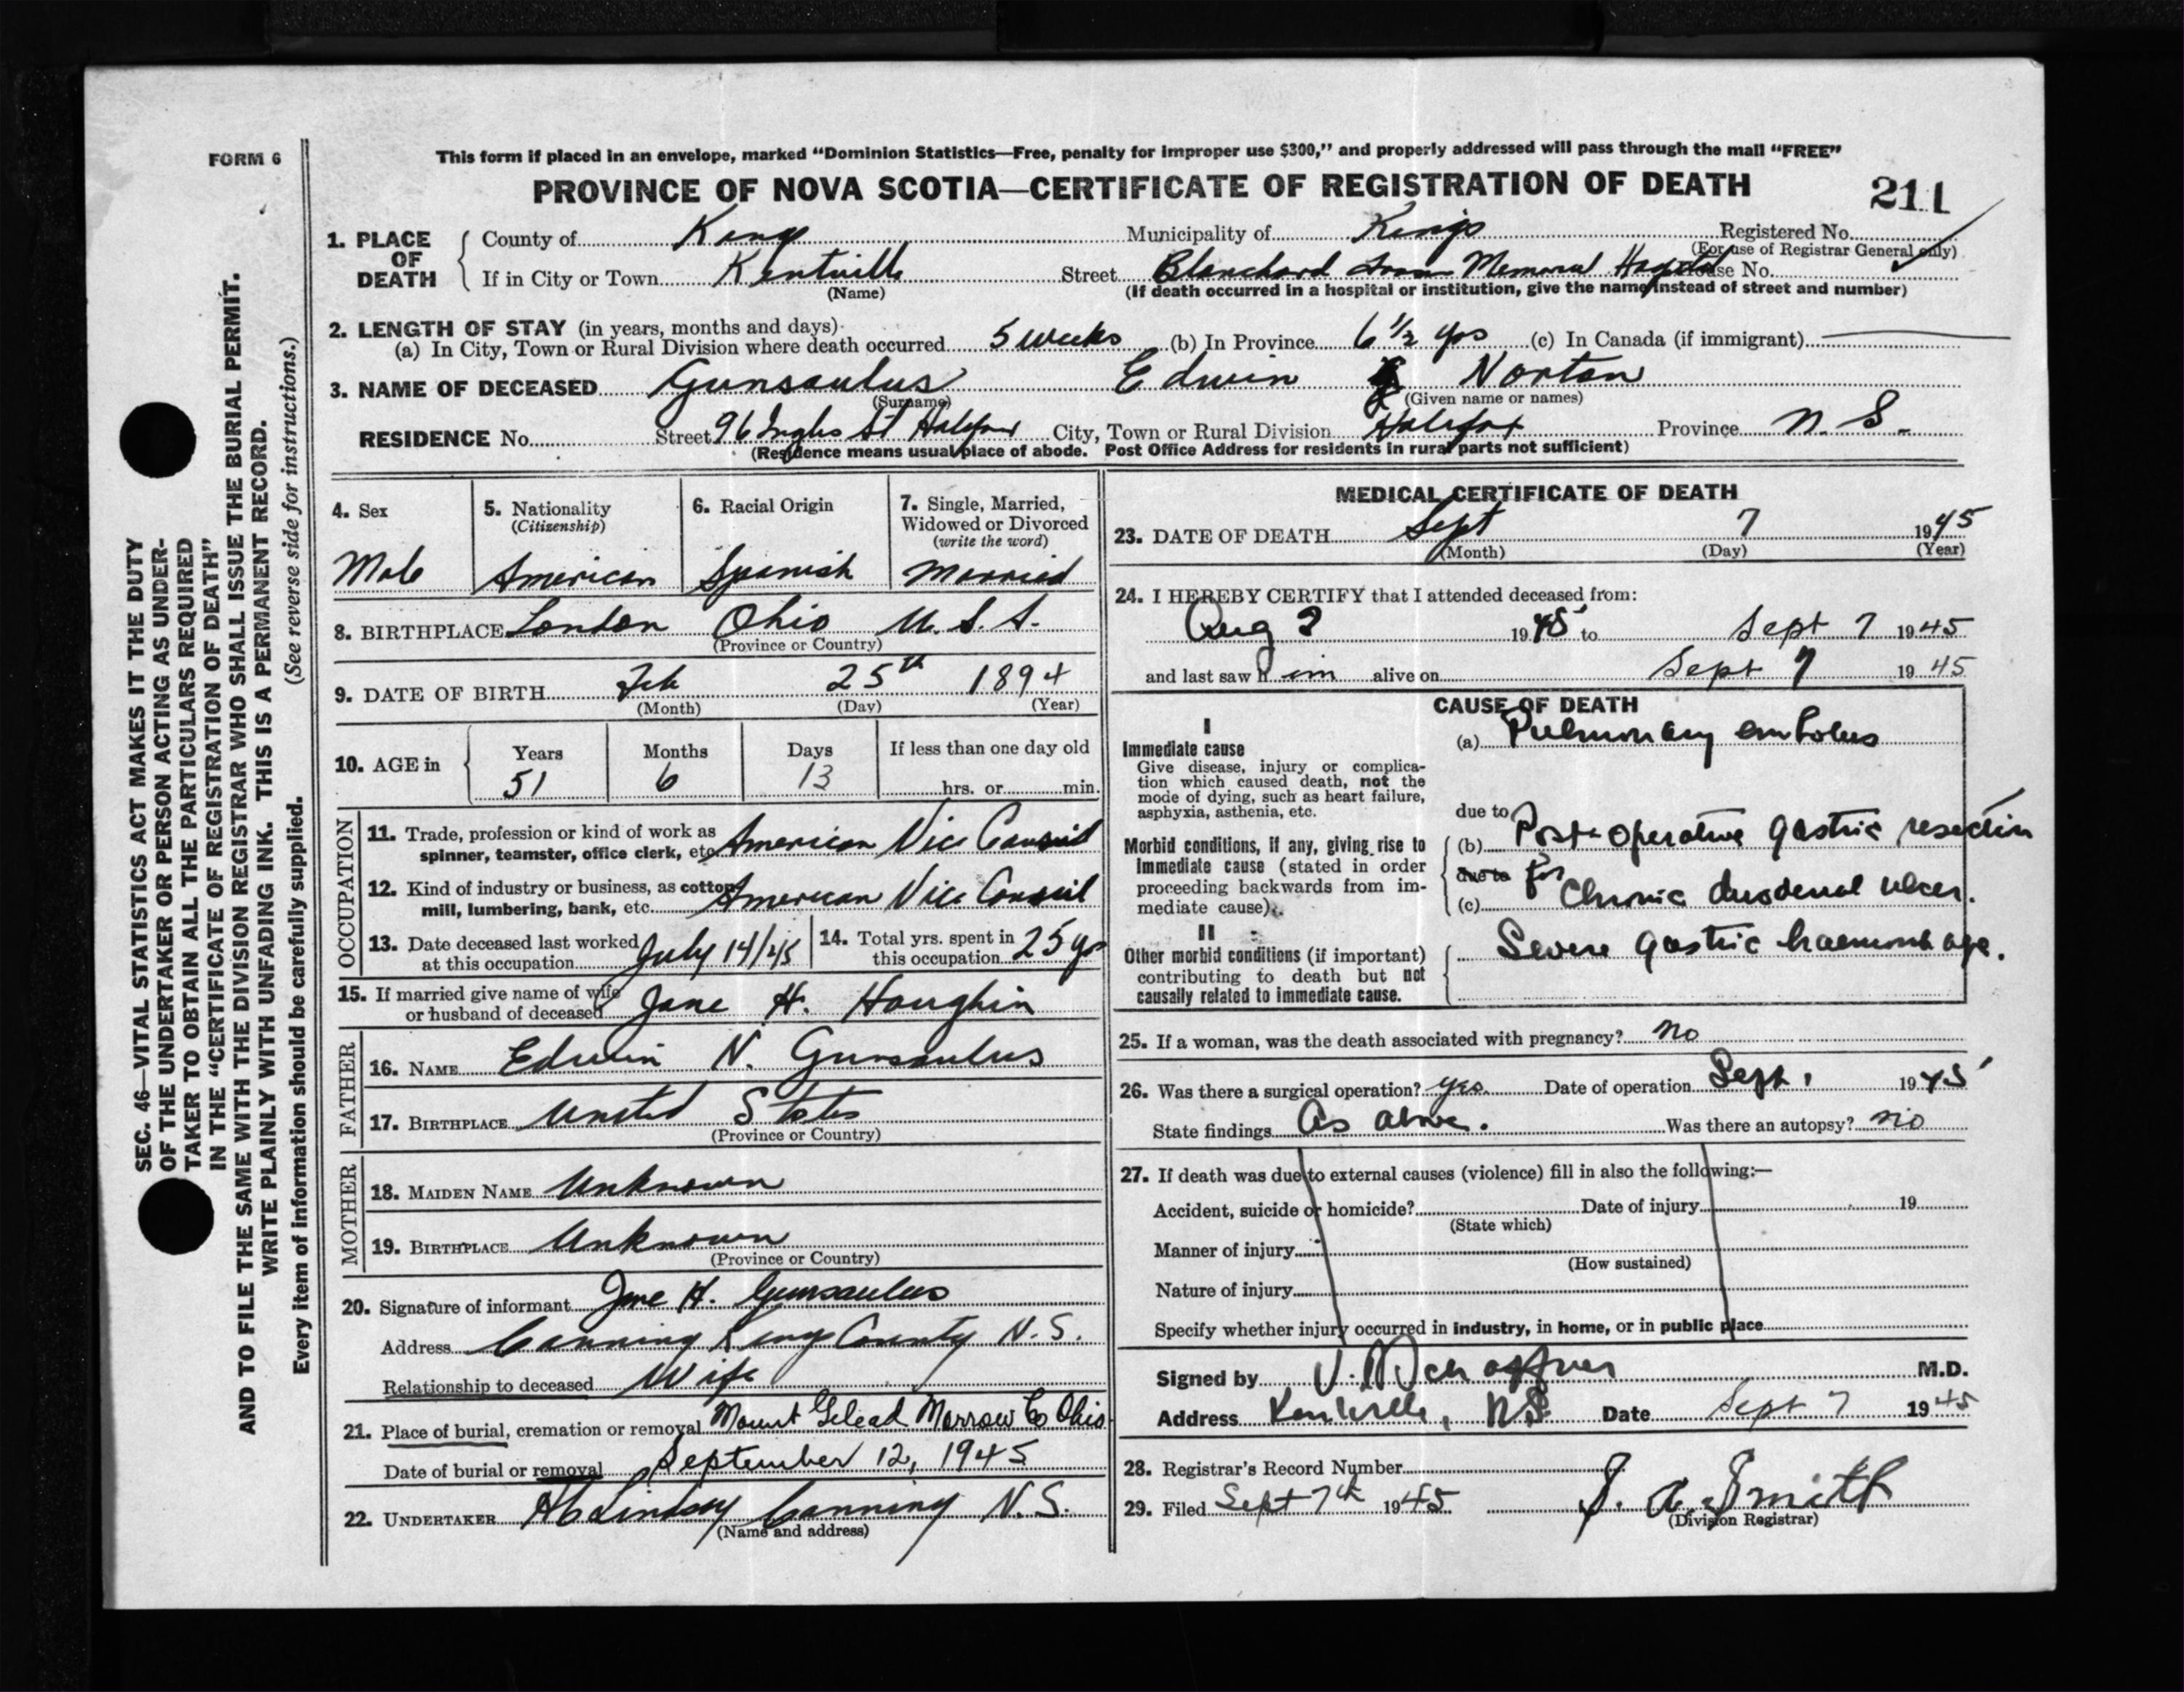 FORM 6
This form if placed in an envelope, marked "Dominion Statistics—Free, penalty for improper use $300," and properly addressed will pass through the mail "FREE"
PROVINCE OF NOVA SCOTIA—CERTIFICATE OF REGISTRATION OF DEATH
211
1. PLACE OF DEATH
County of Kings Municipality of Kings Registered No.
(For use of Registrar General only)
If in City or Town Kentville Street Blanchard Memorial Hospital House No.
(Name) (If death occurred in a hospital or institution, give the name instead of street and number)
2. LENGTH OF STAY (in years, months and days)
(a) In City, Town or Rural Division where death occurred 5 weeks (b) In Province 6 1/2 yrs (c) In Canada (if immigrant)
3. NAME OF DECEASED Gunsaulus Edwin Norton
(Surname) (Given name or names)
RESIDENCE No. Street 96 Inglis St Halifax City, Town or Rural Division Halifax Province N. S.
(Residence means usual place of abode. Post Office Address for residents in rural parts not sufficient)
4. Sex
Male
5. Nationality
(Citizenship)
American
6. Racial Origin
Spanish
7. Single, Married, Widowed or Divorced
(write the word)
Married
8. BIRTHPLACE London Ohio U. S. A.
(Province or Country)
9. DATE OF BIRTH Feb 25th 1894
(Month) (Day) (Year)
10. AGE in
Years Months Days If less than one day old
51 6 13 hrs. or min.
OCCUPATION
11. Trade, profession or kind of work as
spinner, teamster, office clerk, etc. American Vice Consul
12. Kind of industry or business, as cotton
mill, lumbering, bank, etc. American Vice Consul
13. Date deceased last worked
at this occupation July 14/45
14. Total yrs. spent in
this occupation 25 yrs
15. If married give name of wife
or husband of deceased Jane H. Haughin
FATHER
16. NAME Edwin N. Gunsaulus
17. BIRTHPLACE United States
(Province or Country)
MOTHER
18. MAIDEN NAME Unknown
19. BIRTHPLACE Unknown
(Province or Country)
20. Signature of informant Jane H. Gunsaulus
Address Canning Kings County N.S.
Relationship to deceased Wife
21. Place of burial, cremation or removal Mount Gilead Morrow Co Ohio
Date of burial or removal September 12, 1945
22. UNDERTAKER Lindsay Canning N.S.
(Name and address)
MEDICAL CERTIFICATE OF DEATH
23. DATE OF DEATH Sept 7 1945
(Month) (Day) (Year)
24. I HEREBY CERTIFY that I attended deceased from:
Aug 2 1945 to Sept 7 1945
and last saw h im alive on Sept 7 1945
CAUSE OF DEATH
I
Immediate cause
Give disease, injury or complica-
tion which caused death, not the
mode of dying, such as heart failure,
asphyxia, asthenia, etc.
(a) Pulmonary embolus
due to
Morbid conditions, if any, giving rise to
immediate cause (stated in order
proceeding backwards from im-
mediate cause).
(b) Post-operative gastric resection
due to for
(c) Chronic duodenal ulcer.
II
Other morbid conditions (if important)
contributing to death but not
causally related to immediate cause.
Severe gastric haemorrhage.
25. If a woman, was the death associated with pregnancy? no
26. Was there a surgical operation? yes Date of operation Sept 1 1945
State findings As above. Was there an autopsy? no
27. If death was due to external causes (violence) fill in also the following:—
Accident, suicide or homicide? Date of injury 19
(State which)
Manner of injury
(How sustained)
Nature of injury
Specify whether injury occurred in industry, in home, or in public place
Signed by Schaffner M.D.
Address Kentville, N.S. Date Sept 7 1945
28. Registrar's Record Number
29. Filed Sept 7th 1945 Smith
(Division Registrar)
SEC. 46—VITAL STATISTICS ACT MAKES IT THE DUTY
OF THE UNDERTAKER OR PERSON ACTING AS UNDER-
TAKER TO OBTAIN ALL THE PARTICULARS REQUIRED
IN THE "CERTIFICATE OF REGISTRATION OF DEATH"
AND TO FILE THE SAME WITH THE DIVISION REGISTRAR WHO SHALL ISSUE THE BURIAL PERMIT.
WRITE PLAINLY WITH UNFADING INK. THIS IS A PERMANENT RECORD.
Every item of information should be carefully supplied. (See reverse side for instructions.)